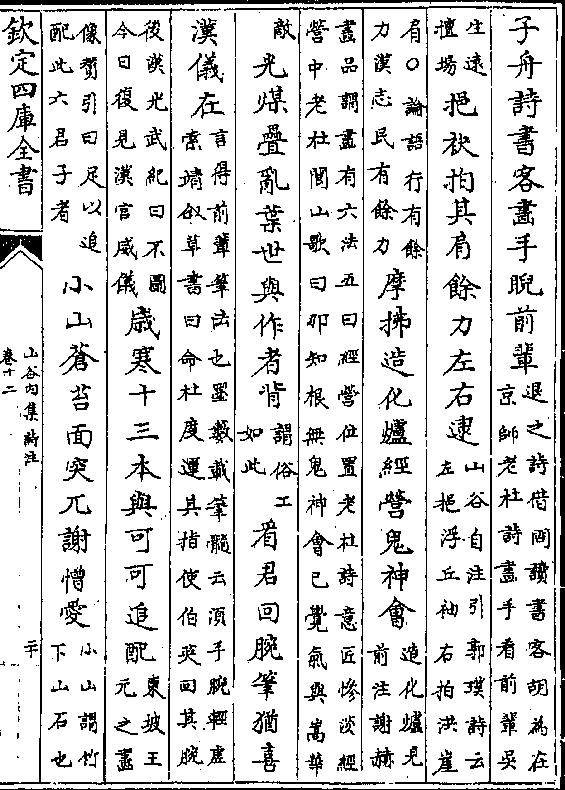 子舟詩書客畫手睨前輩
退之詩借問讀書客胡為在
京師老杜詩畫手看前輩吳
生遠
擅場
挹袂拍其肩餘力左右逮
山谷自注引郭璞詩云
左挹浮丘袖右拍洪崖
肩○論語行有餘
力漢志民有餘力
摩拂造化爐經營鬼神會
造化爐見
前注謝赫
畫品謂畫有六法五曰經營位置老杜詩意匠慘淡經
營中老杜閬山歌曰那知根無鬼神會已覺氣與嵩華
敵
光煤疊亂葉世與作者背
謂俗工
如此
看君回腕筆猶喜
漢儀在
言得前輩筆法也墨藪載筆髓云須手腕輕虛
索靖叙草書曰命杜度運其指使伯英回其腕
後漢光武紀曰不圖
今日復見漢官威儀
歲寒十三本與可可追配
東坡王
元之畫
像贊引曰足以追
配此六君子者
小山蒼苔面突兀謝憎愛
小山謂竹
下山石也
欽定四庫全書
山谷内集詩注
卷十二
二十